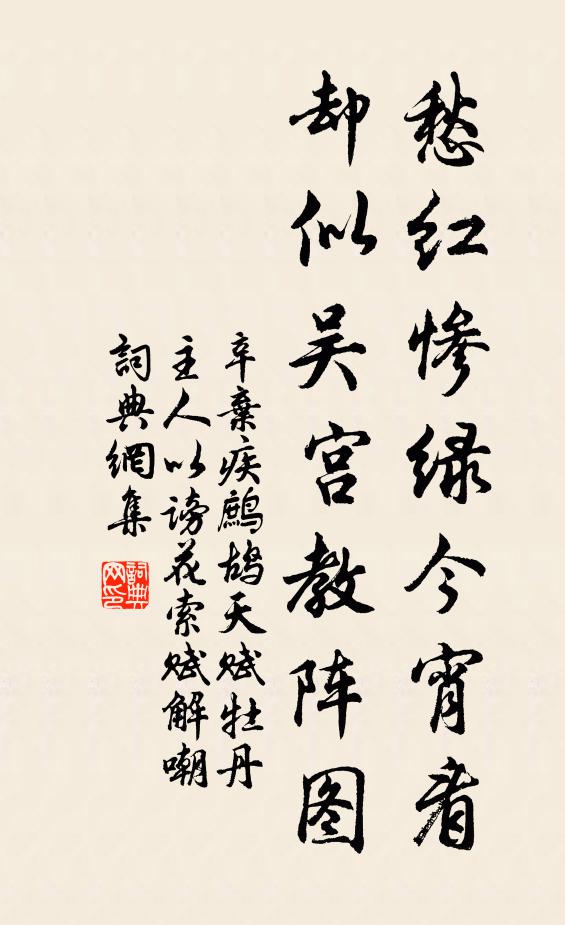 愁红惨绿今宵看
却似吴宫教阵图
辛棄疾鹧鸪天赋牡丹
主人以谤花索赋解嘲
詞典網集
詞典
网印